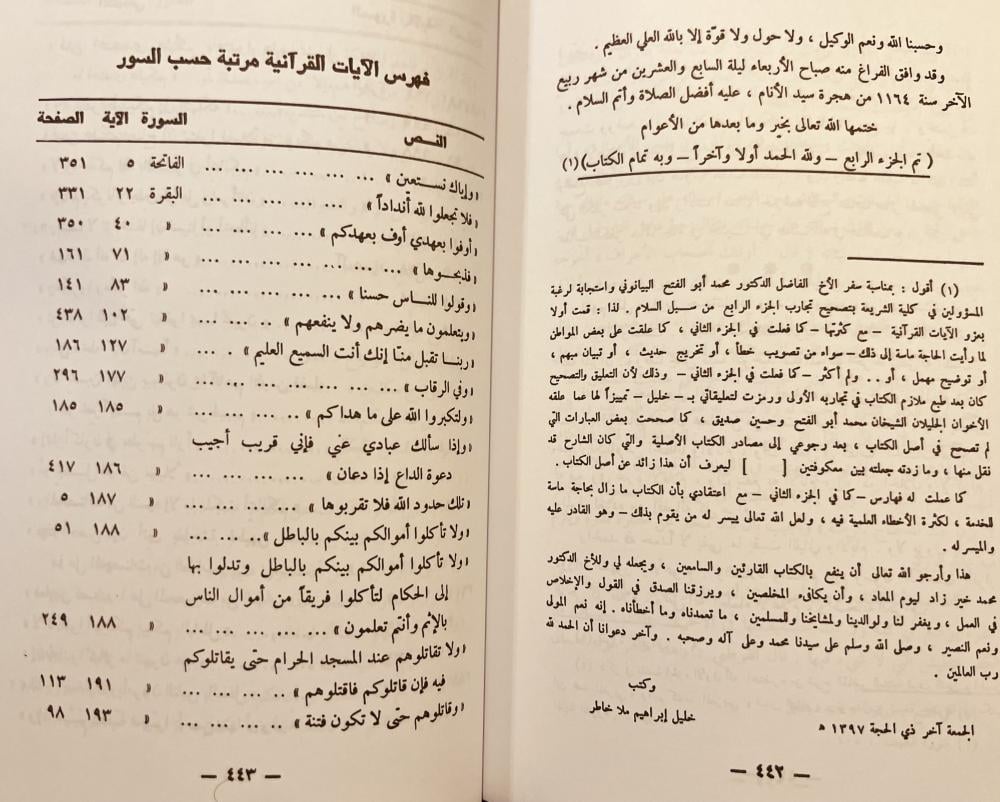 وحسبنا الله ونعم الوكيل ، ولا حول ولا قوّة إلا بالله العلي العظيم .
وقد وافق الفراغ منه صباح الأربعاء ليلة السابع والعشرين من شهر ربيع
الآخر سنة ١١٦٤ من هجرة سيد الأنام ، عليه أفضل الصلاة وأتم السلام .
ختمها الله تعالى بخير وما بعدها من الأعوام
( تم الجزء الرابع – ولله الحمد أولا وآخراً – وبه تمام الكتاب)(١)
(١) أقول : بمناسبة سفر الأخ الفاضل الدكتور محمد أبو الفتح البيانوني واستجابة لرغبة
المسؤولين في كلية الشريعة بتصحيح تجارب الجزء الرابع من سبل السلام . لذا : قمت أولا
بعزو الآيات القرآنية – مع كثرتها – كما فعلت في الجزء الثاني ، كما علقت على بعض المواطن
لما رأيت الحاجة ماسة إلى ذلك – سواء من تصويب خطأ ، أو تخريج حديث ، أو تبيان مبهم ،
أو توضيح مهمل ، أو.. ولم أكثر – كما فعلت في الجزء الثاني – وذلك لأن التعليق والتصحيح
كان بعد طبع ملازم الكتاب في تجاربه الأولى ورمزت لتعليقاتي بـ – خليل – تمييزاً لها عما علقه
الأخوان الجليلان الشيخان محمد أبو الفتح وحسين صديق ، كما صححت بعض العبارات التي
لم تصحح في أصل الكتاب ، بعد رجوعي إلى مصادر الكتاب الأصلية والتي كان الشارح قد
نقل منها ، وما زدته جعلته بين معكوفتين [ ] ليعرف أن هذا زائد عن أصل الكتاب .
كما عملت له فهارس – كما في الجزء الثاني – مع اعتقادي بأن الكتاب ما زال بحاجة ماسة
للخدمة ، لكثرة الأخطاء العلمية فيه ، ولعل الله تعالى ييسر له من يقوم بذلك – وهو القادر عليه
والميسر له .
هذا وأرجو الله تعالى أن ينفع بالكتاب القارئين والسامعين ، ويجعله لي وللأخ الدكتور
محمد خير زاد ليوم المعاد ، وأن يكافىء المخلصين ، ويرزقنا الصدق في القول والإخلاص
في العمل ، ويغفر لنا ولوالدينا ولمشايخنا والمسلمين ، ما تعمدناه وما أخطأناه . إنه نعم المولى
ونعم النصير ، وصلى الله وسلم على سيدنا محمد وعلى آله وصحبه . وآخر دعوانا أن الحمد لله
رب العالمين .
وكتب
خليل إبراهيم ملا خاطر
الجمعة آخر ذي الحجة ١٣٩٧ ه
– ٤٤٢ –
فهرس الآيات القرآنية مرتبة حسب السور
النـص السورة الآية الصفحة
«وإياك نستعين» ... ... ... ... ... ... الفاتحة ٥ ٣٥١
«فلا تجعلوا لله أنداداً» ... ... ... ... ... البقرة ٢٢ ٣٣١
«أوفوا بعهدي أوف بعهدكم» ... ... ... ... « ٤٠ ٣٥٠
«فذبحـوها» ... ... ... ... ... ... ... « ٧١ ١٦١
«وقولوا للناس حسنا» ... ... ... ... ... « ٨٣ ١٤١
«ويتعلمون ما يضرهم ولا ينفعهم» .. ... ... « ١٠٢ ٤٣٨
«ربنا تقبل منا إنك أنت السميع العليم» . ... « ١٢٧ ١٨٦
«وفي الرقاب» ... ... ... ... ... ... ... « ١٧٧ ٢٩٦
«ولتكبروا الله على ما هداكم» .. ... ... ... « ١٨٥ ١٨٥
«وإذا سألك عبادي عني فإني قريب أجيب
دعوة الداع إذا دعان» ... ... ... ... « ١٨٦ ٤١٧
«تلك حدود الله فلا تقربوها» ... ... ... ... « ١٨٧ ٥
«ولا تأكلوا أموالكم بينكم بالباطل» .. ... ... « ١٨٨ ٥١
«ولا تأكلوا أموالكم بينكم بالباطل وتدلوا بها
إلى الحكام لتأكلوا فريقاً من أموال الناس
بالإثم وأنتم تعلمون» ... ... ... ... ... « ١٨٨ ٢٤٩
«ولا تقاتلوهم عند المسجد الحرام حتى يقاتلوكم
فيه فإن قاتلوكم فاقتلوهم» ... ... ... ... « ١٩١ ١١٣
«وقاتلوهم حتى لا تكون فتنة» .. ... ... ... « ١٩٣ ٩٨
– ٤٤٣ –